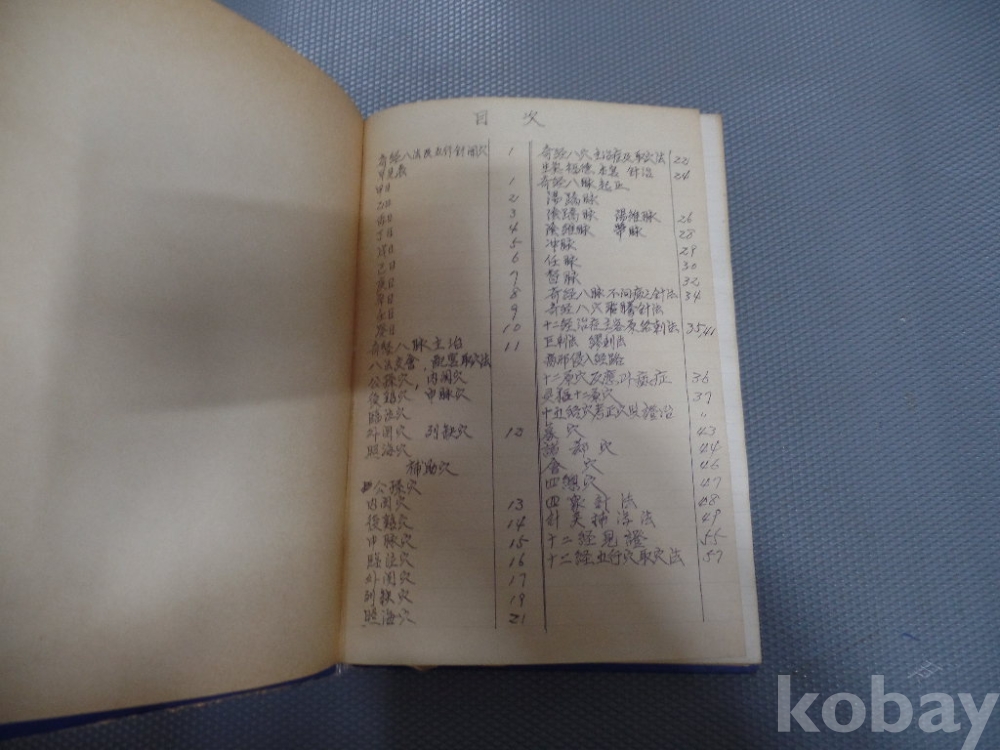 目 次
奇經八法陰五行針開穴 1
早見表
甲日 1
乙日 2
丙日 3
丁日 4
戊日 5
己日 6
庚日 7
辛日 8
壬日 9
癸日 10
奇經八脈主治 11
八法交會, 配器取穴法
公孫穴, 内関穴
後谿穴 申脉穴
臨泣穴
外関穴 列缺穴 12
照海穴
補瀉穴
公孫穴
内関穴 13
後谿穴 14
申脉穴 15
臨泣穴 16
外関穴 17
列缺穴 19
照海穴 21
奇經八穴主治症及取穴法 22
針治 24
奇經八脉起止
陽蹻脉
陰蹻脉 陽維脉 26
陰維脉 帶脉 28
冲脉 29
任脉 30
督脉 32
奇經八脉不同症之針法 34
奇經八穴 針法
十二經治症主客原絡刺法 35,41
巨刺法 繆刺法
侵入經路
十二原穴反應, 症 36
十二原穴 37
十五絡穴 穴 證治 〃
募穴 43
諸郄穴 44
會穴 46
四總穴 47
四家針法 48
針灸補瀉法 49
十二經見證 55
十二經五行穴取穴法 57
kobay